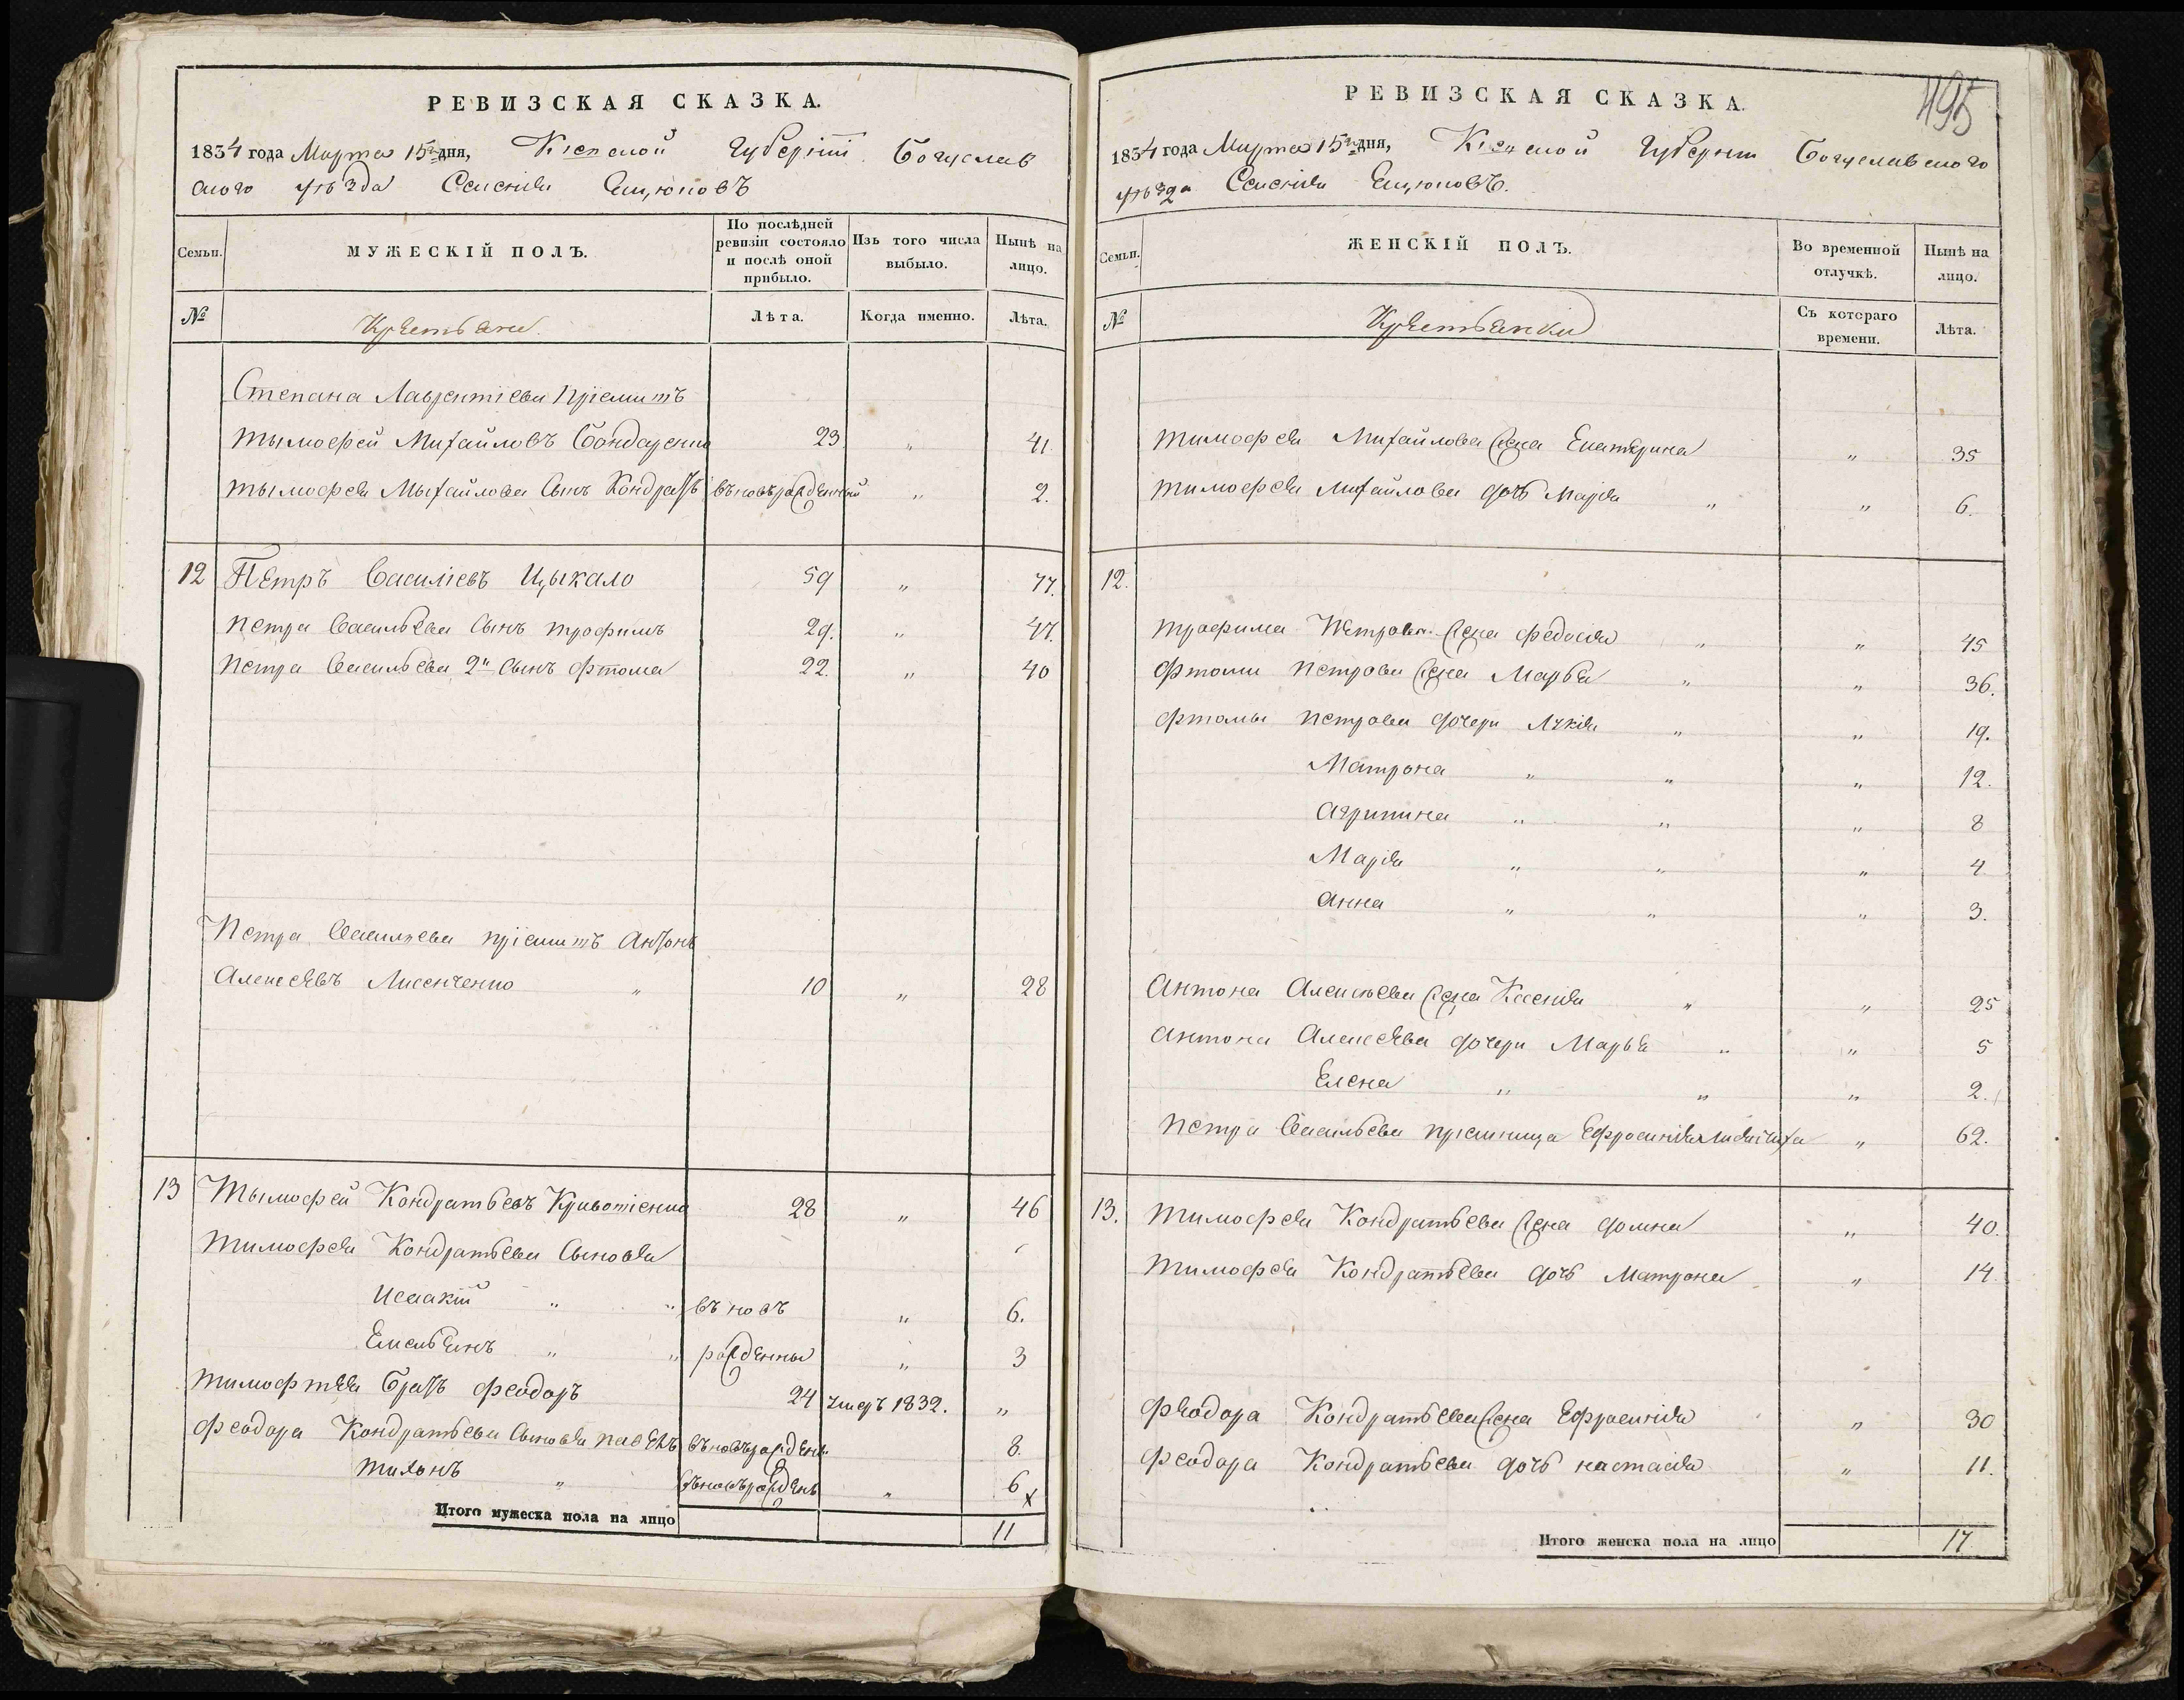 РЕВИЗСКАЯ СКАЗКА.
1834 года Марта 15го дня, Кіевской Губерніи Богуслав
скаго уѣзда Селенія Емцюховъ
Семьи. МУЖЕСКІЙ ПОЛЪ. По послѣдней ревизіи состояло и послѣ оной прибыло. Изъ того числа выбыло. Нынѣ на лицо.
№ Крестьяне. Лѣта. Когда именно. Лѣта.
Степана Лаврентіева Пріемишъ
Тымофей Михайловъ Бондаренко 23 „ 41.
Тымофея Мыхайлова Сынъ Кондратъ вновьрожденный „ 2.
12 Петръ Василіевъ Цыкало 59 „ 77.
Петра Васильева Сынъ Трофимъ 29. „ 47.
Петра Васильева 2й Сынъ Фтома 22. „ 40
Петра Васильева пріемишъ Антонъ
Алексѣевъ Лисенченко „ 10 „ 28
13 Тымофей Кондратьевъ 28 „ 46
Тимофея Кондратьева Сыновья
Исаакій „ „ вновъ „ 6.
Емельянъ „ „ рожденны „ 3
Тимофтея Братъ Феодоръ 24 умеръ 1832. „
Феодора Кондратьева Сыновья Павелъ вновьрожденъ 8.
Тихонъ „ вновьрожденъ „ 6
Итого мужеска пола на лицо 11
495
РЕВИЗСКАЯ СКАЗКА.
1834 года Марта 15го дня, Кіевской Губерніи Богуславскаго
уѣзда Селенія Емцюховъ.
Семьи. ЖЕНСКІЙ ПОЛЪ. Во временной отлучкѣ. Нынѣ на лицо.
№ Крестьянки Съ котораго времени. Лѣта.
Тимофея Михайлова Жена Екатерина „ 35
Тимофея Михайлова дочь Марія „ „ 6.
12.
Трофима Петрова Жена Федосія „ „ 45
Фтомы Петрова Жена Марья „ „ 36.
Фтомы Петрова дочери Лукія „ „ 19.
Матрона „ „ „ 12.
Агрипина „ „ „ 8
Марія „ „ „ 4
Анна „ „ „ 3.
Антона Алексѣева Жена Ксенія „ „ 25
Антона Алексѣева дочери Марья „ „ 5
Елена „ „ „ 2.
Петра Васильева пріемница Ефросинія „ 62.
13. Тимофея Кондратьева Жена Домна „ 40.
Тимофея Кондратьева дочь Матрона „ 14
Феодора Кондратьева Жена Ефросинія „ 30
Феодора Кондратьева дочь Настасія „ 11.
Итого женска пола на лицо 17